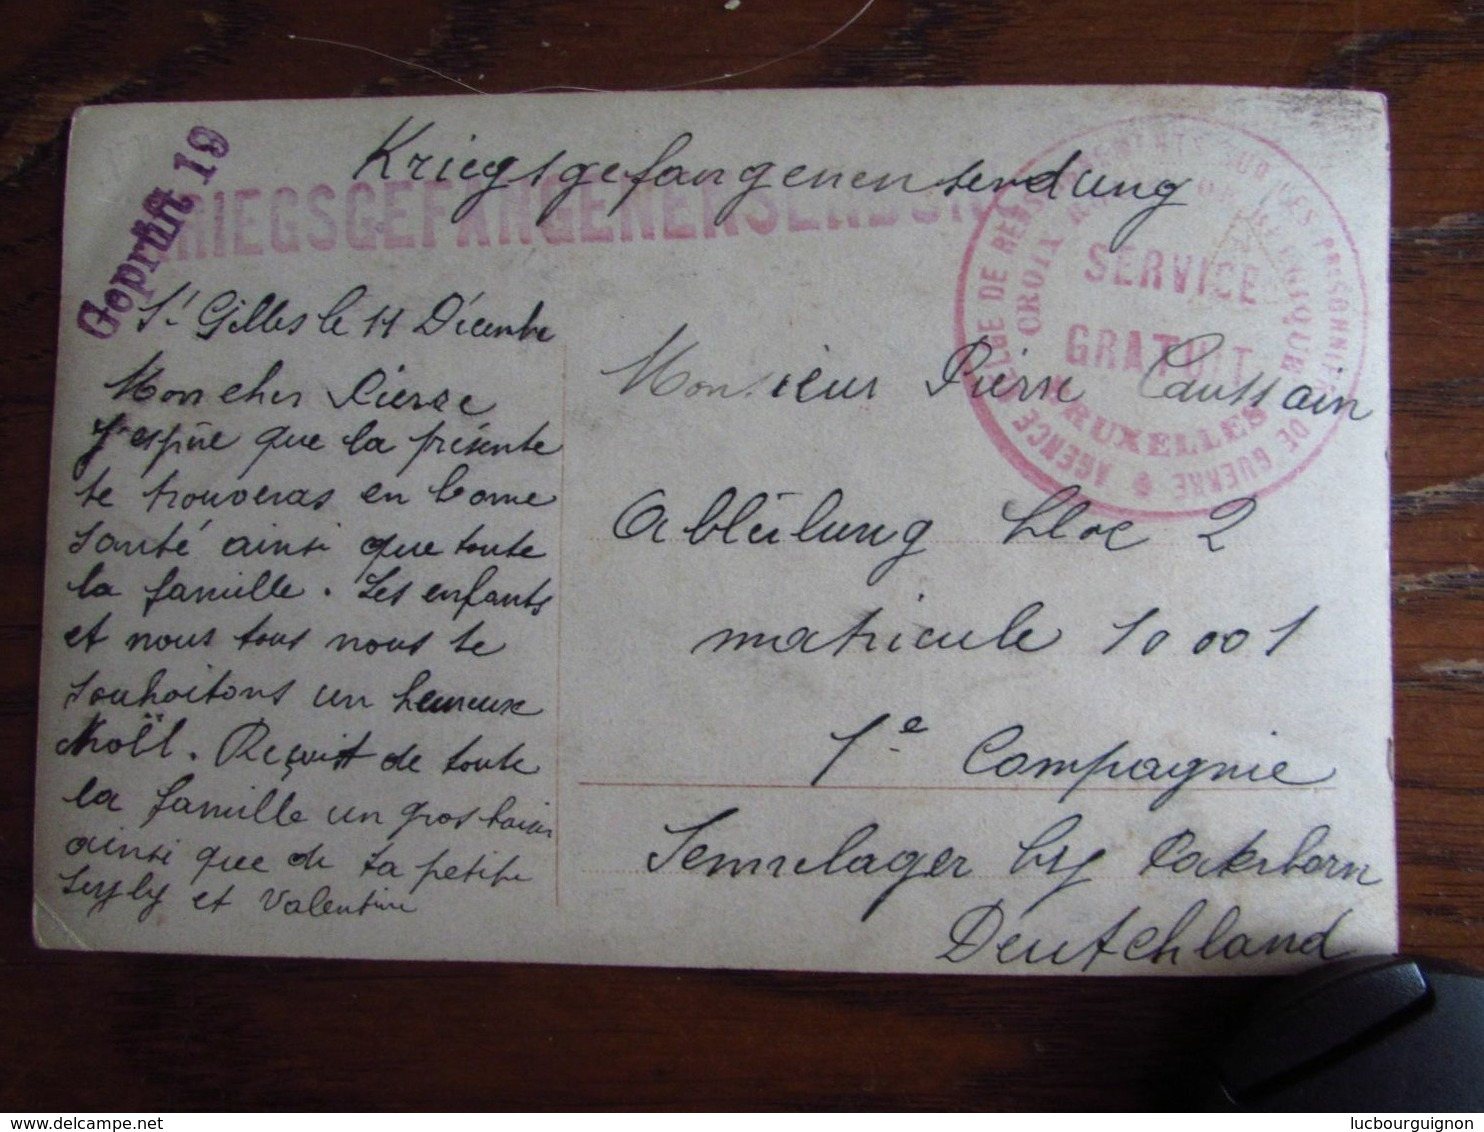 Kriegsgefangenensendung
KRIEGSGEFANGENENSENDUNG
Geprüft 19
AGENCE BELGE DE RENSEIGNEMENTS SUR LES PRISONNIERS DE GUERRE
CROIX ROUGE DE BELGIQUE
SERVICE
GRATUIT
BRUXELLES
St Gilles le 11 Décembre
Mon cher Pierre
J'espère que la présente
te trouveras en bonne
santé ainsi que toute
la famille. Les enfants
et nous tous nous te
souhaitons un heureux
Noël. Reçoit de toute
la famille un gros baiser
ainsi que de ta petite
et Valentine
Monsieur Pierre Caussain
Abteilung bloc 2
matricule 10001
1e Compagnie
Sennelager by Paderborn
Deutchland
delcampe.net
lucbourguignon